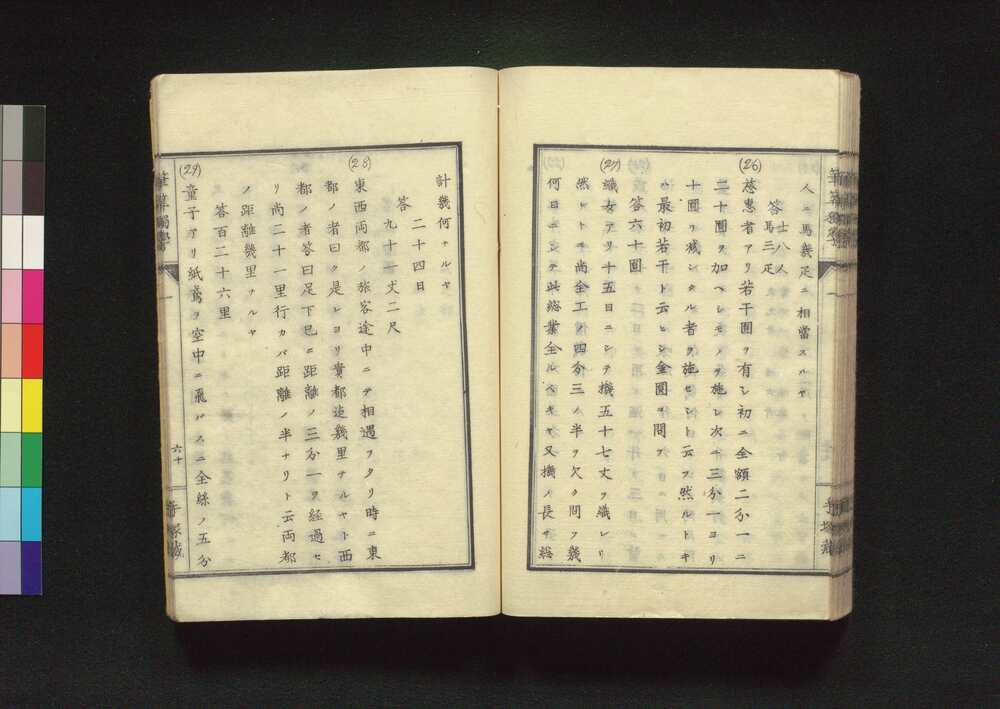 人ニ馬幾疋ニ相當スルヤ
答 士八人
馬三疋
(26)
慈恵者アリ若干圓ヲ有シ初ニ全額二分一ニ
二十圓ヲ加ヘシモノヲ施シ次ニ三分一ヨリ
十圓ヲ減シタル者ヲ施セント云フ然ルトキ
ハ最初若干ト云ヒシ金圓ヲ問フ
答六十圓
(27)
織女アリ十五日ニシテ機五十七丈ヲ織レリ
然レトモ尚全工ノ四分三ノ半ヲ欠ク問フ幾
何日ニシテ此総業全ルベキヤ又機ノ長サ総
計幾何ナルヤ
答 二十四日
九十一丈二尺
(28)
東西両都ノ旅客途中ニテ相遇フタリ時ニ東
都ノ者曰ク是レヨリ貴都迄幾里ナルヤト西
都ノ者答曰足下已ニ距離ノ三分一ヲ経過セ
リ尚二十一里行カバ距離ノ半ナリト云両都
ノ距離幾里ナルヤ
答百二十六里
(29)
童子アリ紙鳶ヲ空中ニ飛バスニ全絲ノ五分
六十